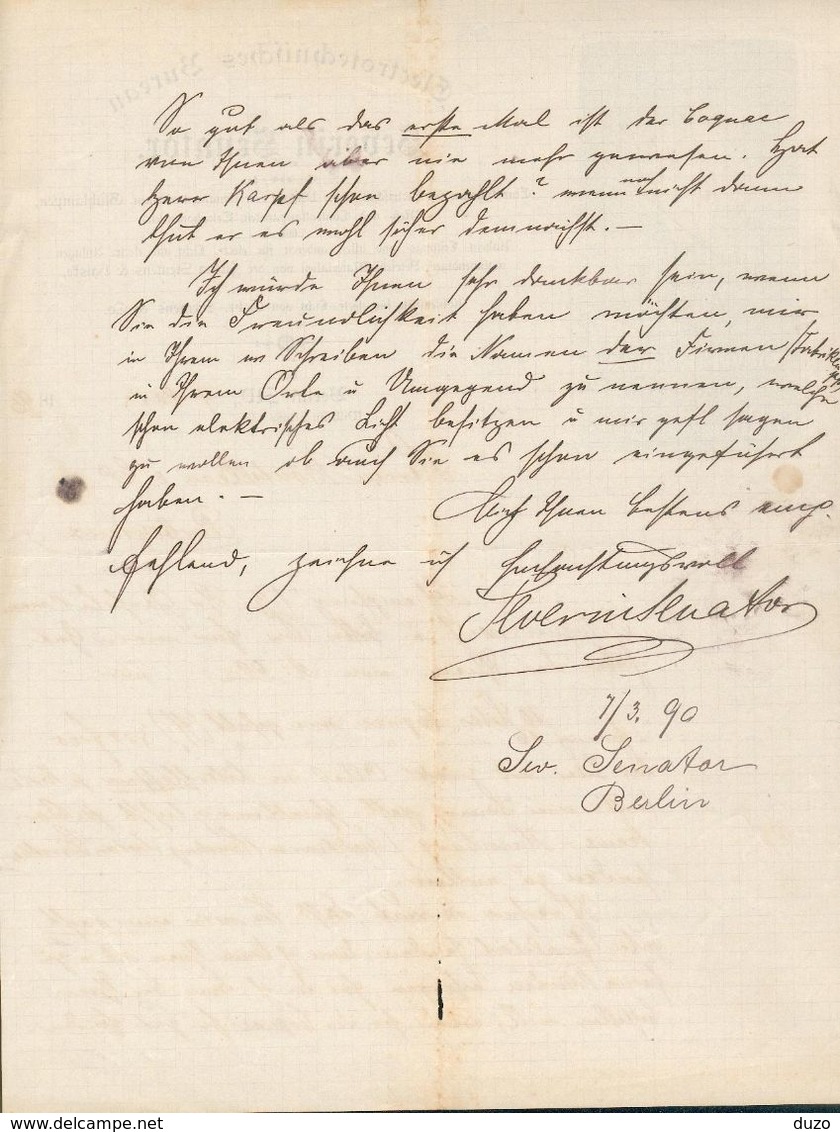 So gut als das erste Mal ist der Cognac
von Ihnen aber nie mehr gewesen. Hat
Herr Karpf schon bezahlt? wenn noch nicht dann
thut er es wohl sicher demnächst. —
Ich würde Ihnen sehr dankbar sein, wenn
Sie die Freundlichkeit haben möchten, mir
in Ihrem w Schreiben die Namen der Firmen
in Ihrem Orte u Umgegend zu nennen, welche
schon elektrisches Licht besitzen u mir gefl sagen
zu wollen ob auch Sie es schon eingeführt
haben. —
Mich Ihnen bestens emp-
fehlend, zeichne ich hochachtungsvoll
Severin Senator
7/3. 90
Sev. Senator
Berlin
Electrotechnisches Bureau
delcampe.net
duzo